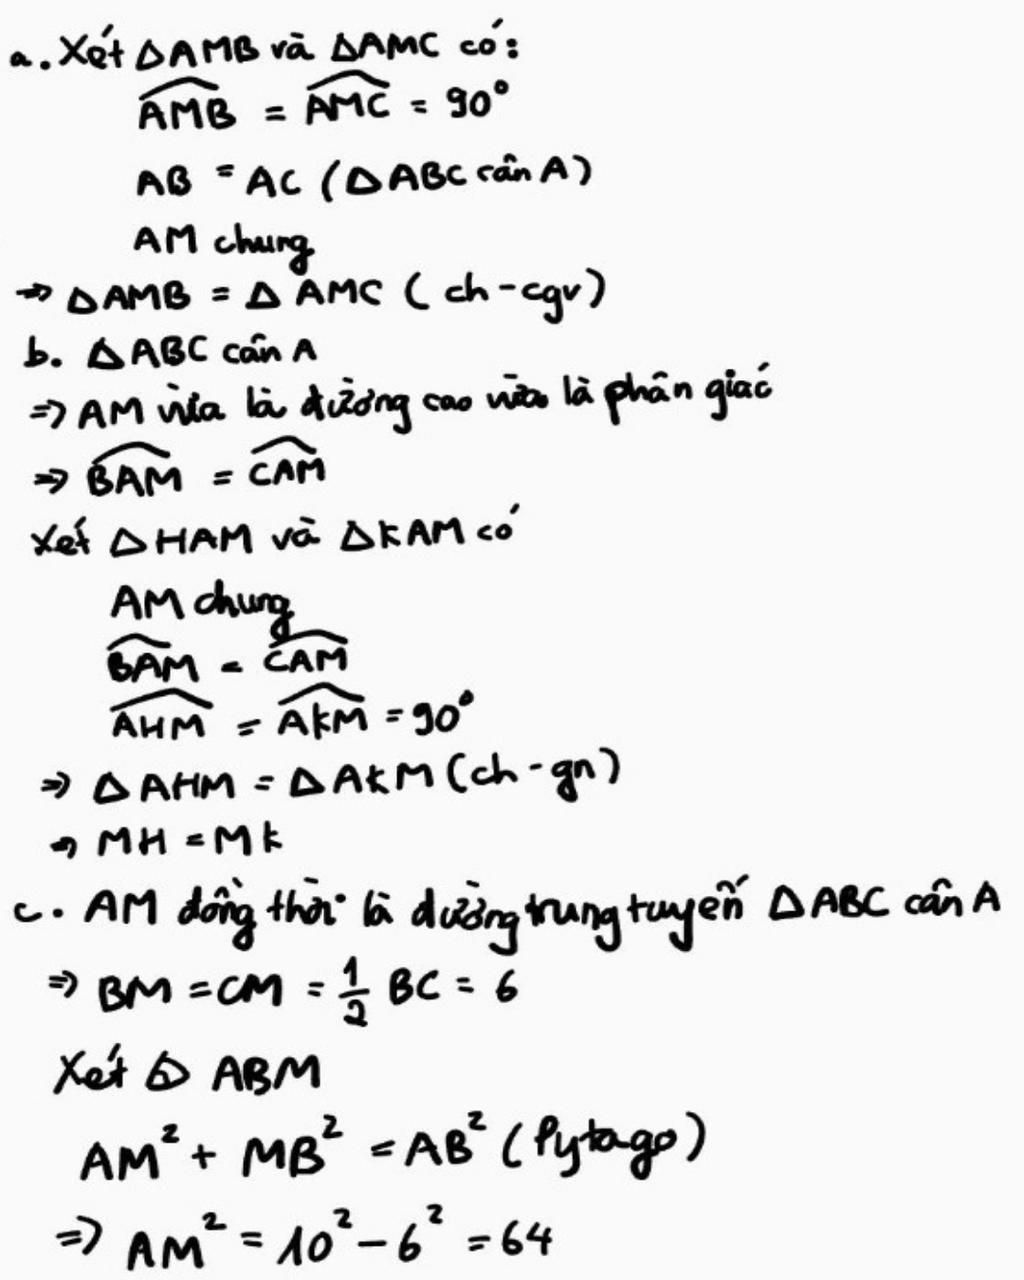 a. Xét ΔAMB và ΔAMC có:
\widehat{AMB} = \widehat{AMC} = 90°
AB = AC (ΔABC cân A)
AM chung
⇒ ΔAMB = ΔAMC (ch-cgv)
b. ΔABC cân A
⇒ AM vừa là đường cao vừa là phân giác
⇒ \widehat{BAM} = \widehat{CAM}
Xét ΔHAM và ΔKAM có
AM chung
\widehat{BAM} = \widehat{CAM}
\widehat{AHM} = \widehat{AKM} = 90°
⇒ ΔAHM = ΔAKM (ch-gn)
⇒ MH = MK
c. AM đồng thời là đường trung tuyến ΔABC cân A
⇒ BM = CM = 1/2 BC = 6
Xét Δ ABM
AM² + MB² = AB² (Pytago)
⇒ AM² = 10² - 6² = 64